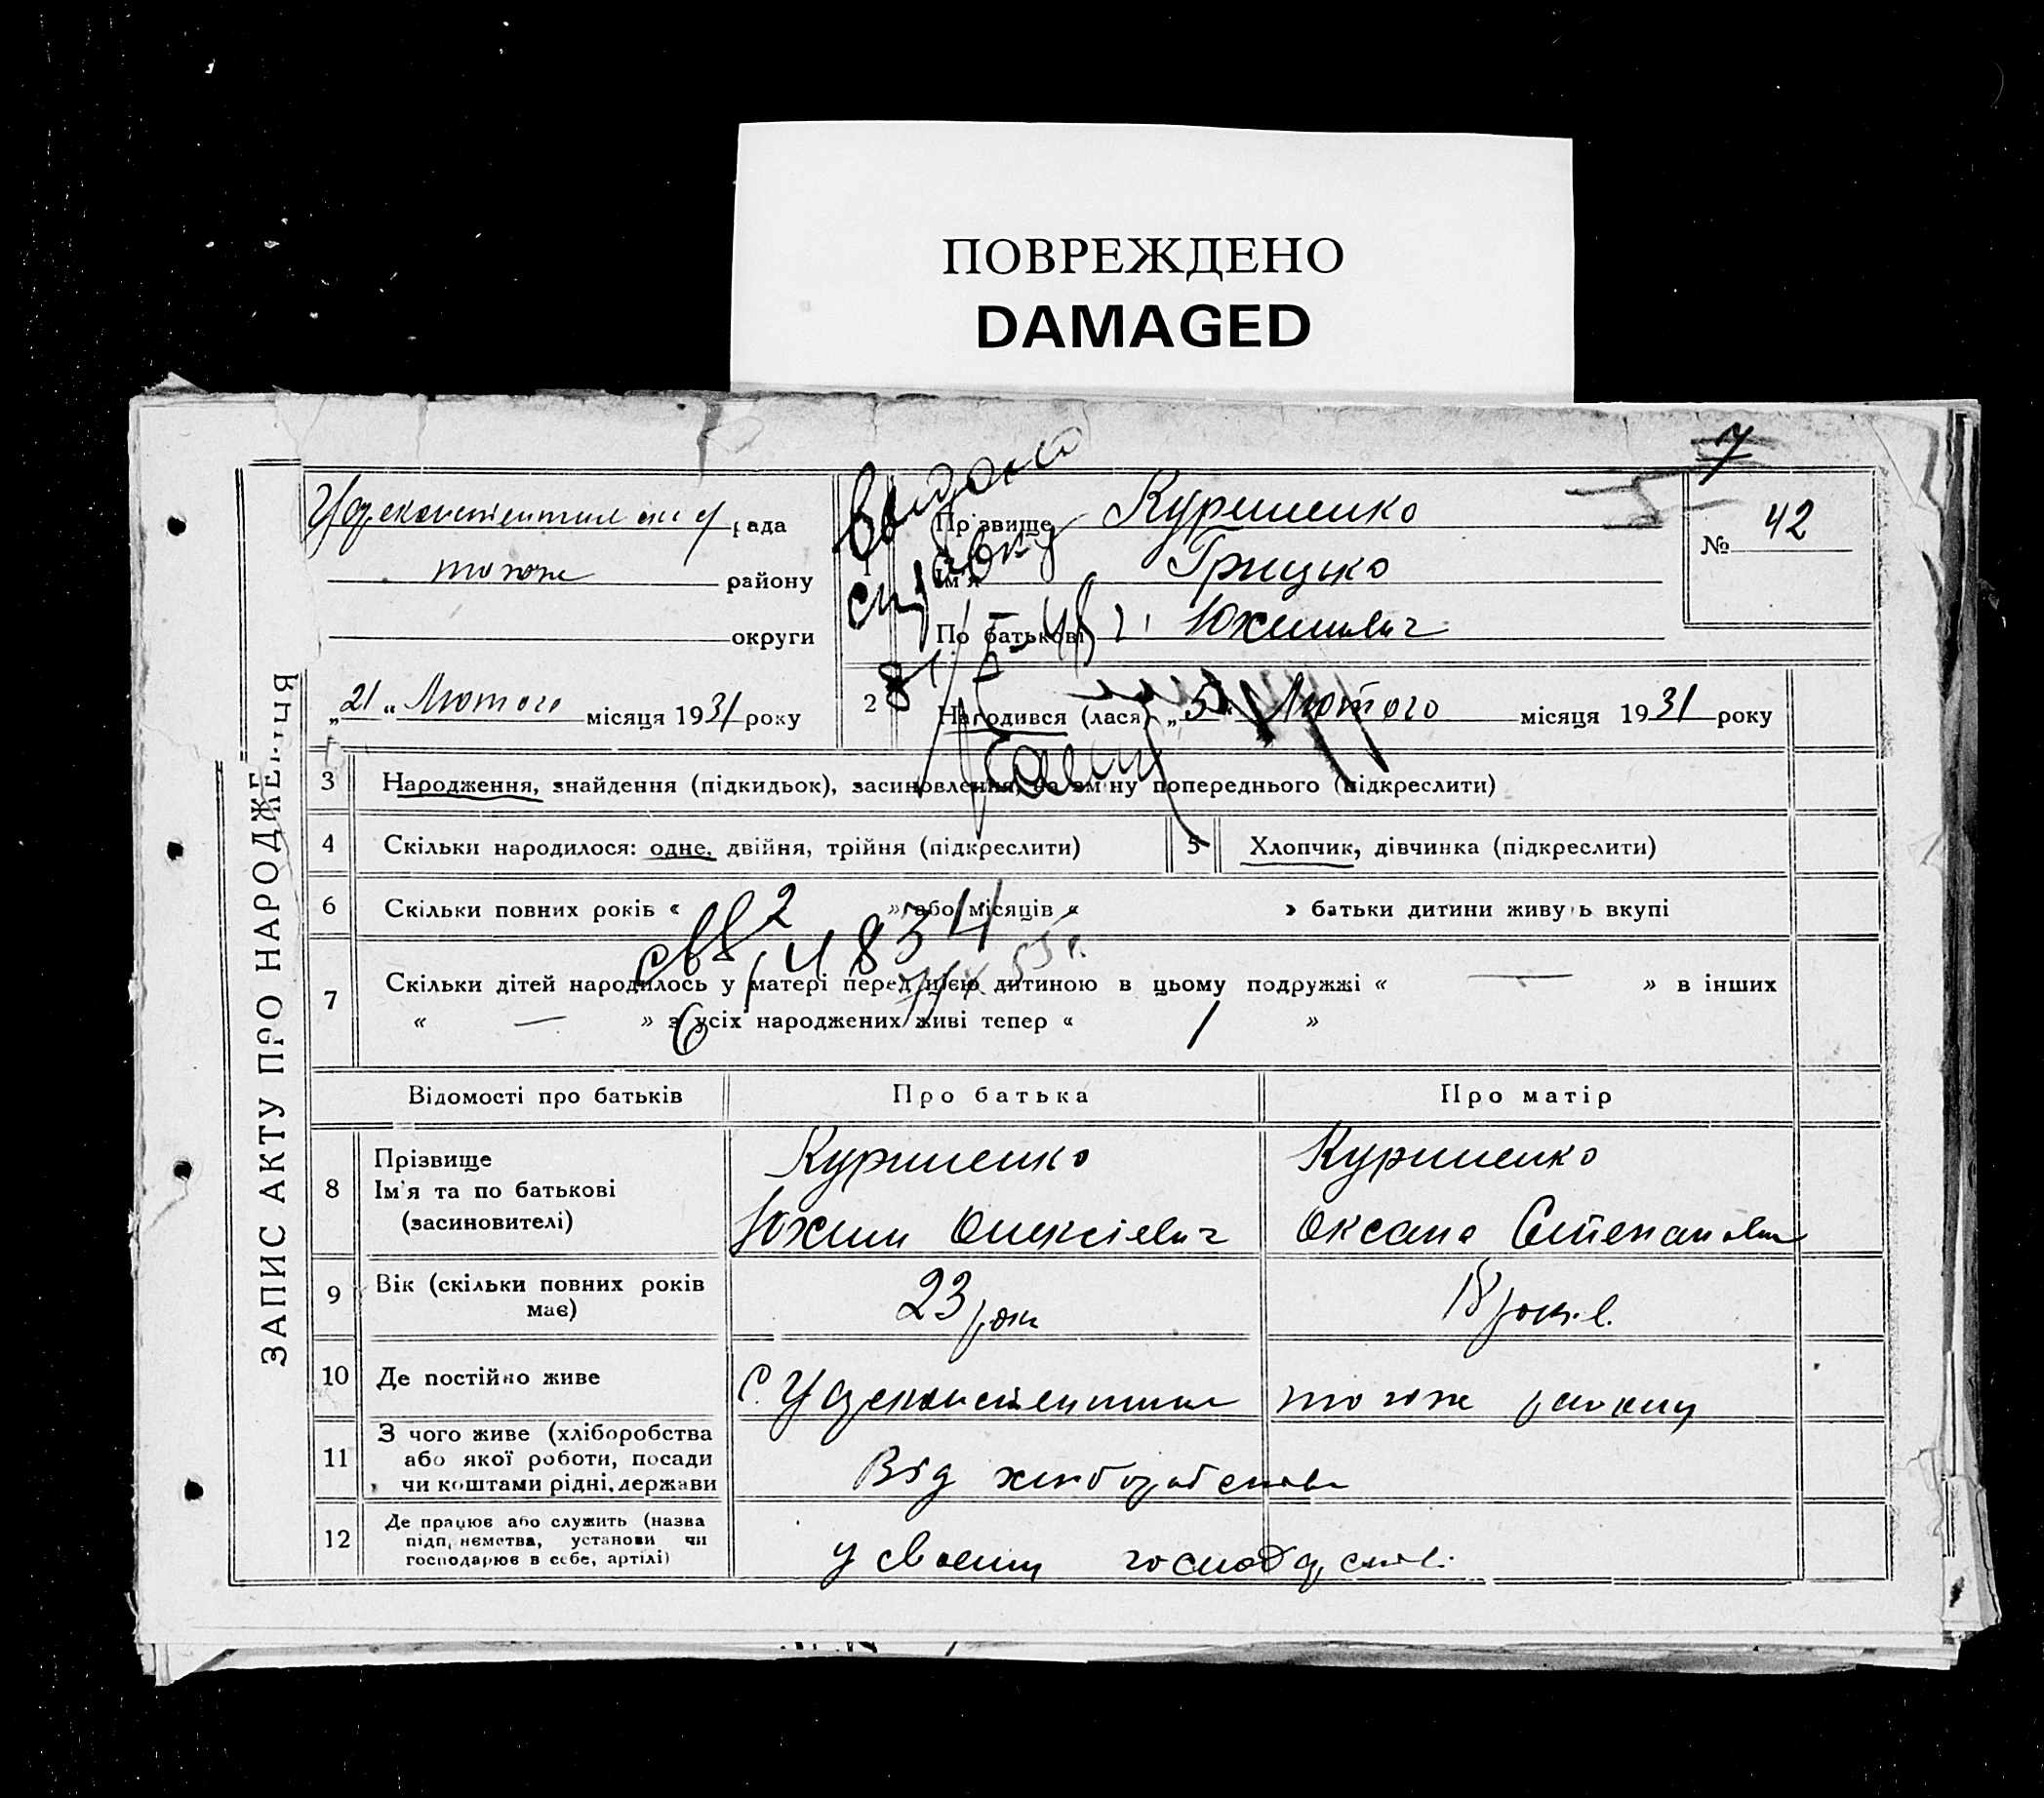 ПОВРЕЖДЕНО
DAMAGED
7
ЗАПИС АКТУ ПРО НАРОДЖЕННЯ
рада
району
округи
„21“ Лютого місяця 1931 року
Выдано
справку
Прізвище Куриленко
Ім'я Грицько
По батькові Юхимович
№ 42
2 Народився (лася) „5“ Лютого місяця 1931 року
3 Народження, знайдення (підкидьок), засиновлення, на зміну попереднього (підкреслити)
4 Скільки народилося: одне, двійня, трійня (підкреслити)
5 Хлопчик, дівчинка (підкреслити)
6 Скільки повних років « » або місяців « » батьки дитини живуть вкупі
7 Скільки дітей народилось у матері перед цією дитиною в цьому подружжі « — » в інших
« — » з усіх народжених живі тепер « 1 »
Відомості про батьків Про батька Про матір
8 Прізвище Куриленко Куриленко
Ім'я та по батькові
(засиновителі) Юхим Олексієвич Оксана
9 Вік (скільки повних років має) 23 роки 18 років
10 Де постійно живе с. того ж району
11 З чого живе (хліборобства
або якої роботи, посади
чи коштами рідні, держави Від хліборобства
12 Де працює або служить (назва
підприємства, установи чи
господарює в себе, артілі) у своєму господарстві